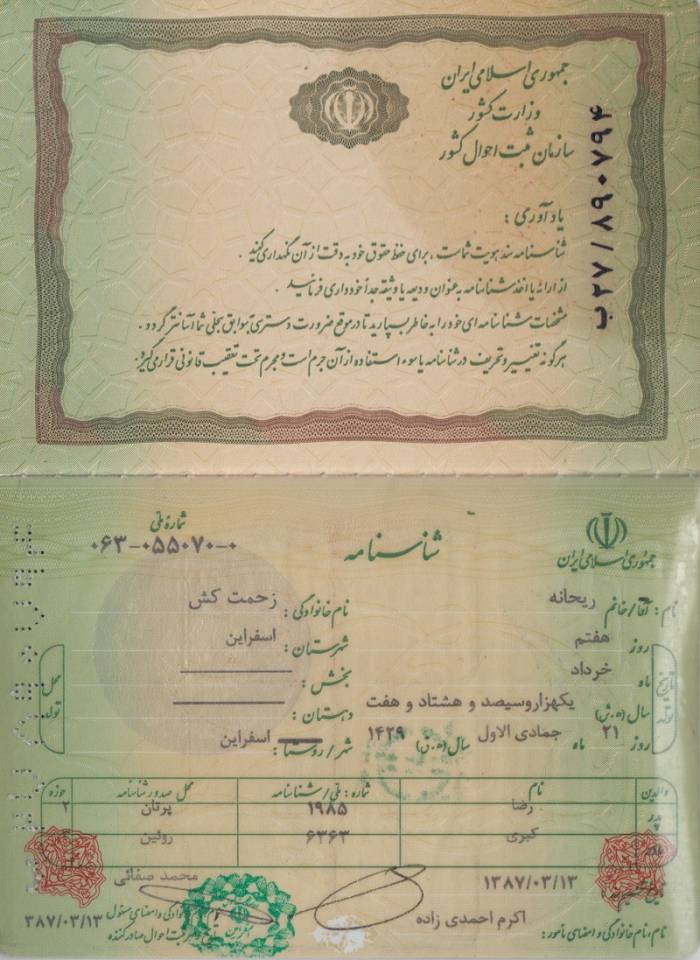 جمهوری اسلامی ایران
وزارت کشور
سازمان ثبت احوال کشور
ب۲۷/۸۹۰۷۹۴
یادآوری :
شناسنامه سند هویت شماست ، برای حفظ حقوق خود به دقت از آن نگهداری کنید .
از ارائه یا اخذ شناسنامه به عنوان ودیعه یا وثیقه جداً خودداری فرمائید .
مشخصات شناسنامه ای خود را به خاطر بسپارید تا در موقع ضرورت دسترسی به سوابق سجلی شما آسانتر گردد .
هرگونه تغییر و تحریف در شناسنامه یا سوء استفاده از آن جرم است و مجرم تحت تعقیب قانونی قرار می گیرد .
جمهوری اسلامی ایران
شناسنامه
شماره ملی
۰۶۳-۰۵۵۰۷۰-۰
نام : آقا/خانم ریحانه
نام خانوادگی : زحمت کش
تاریخ تولد
روز هفتم
ماه خرداد
سال (ه.ش) یکهزاروسیصد و هشتاد و هفت
روز ۲۱ ماه جمادی الاول سال (ه.ق) ۱۴۲۹
محل تولد
شهرستان : اسفراین
بخش :
دهستان :
شهر/روستا : اسفراین
والدین نام شماره : ملی/شناسنامه محل صدور شناسنامه حوزه
پدر رضا ۱۹۸۵ پرتان ۲
مادر کبری ۶۳۶۳ روئین
۱۳۸۷/۰۳/۱۳
محمد صفائی
نام،نام خانوادگی و امضای مأمور : اکرم احمدی زاده
۳۸۷/۰۳/۱۳